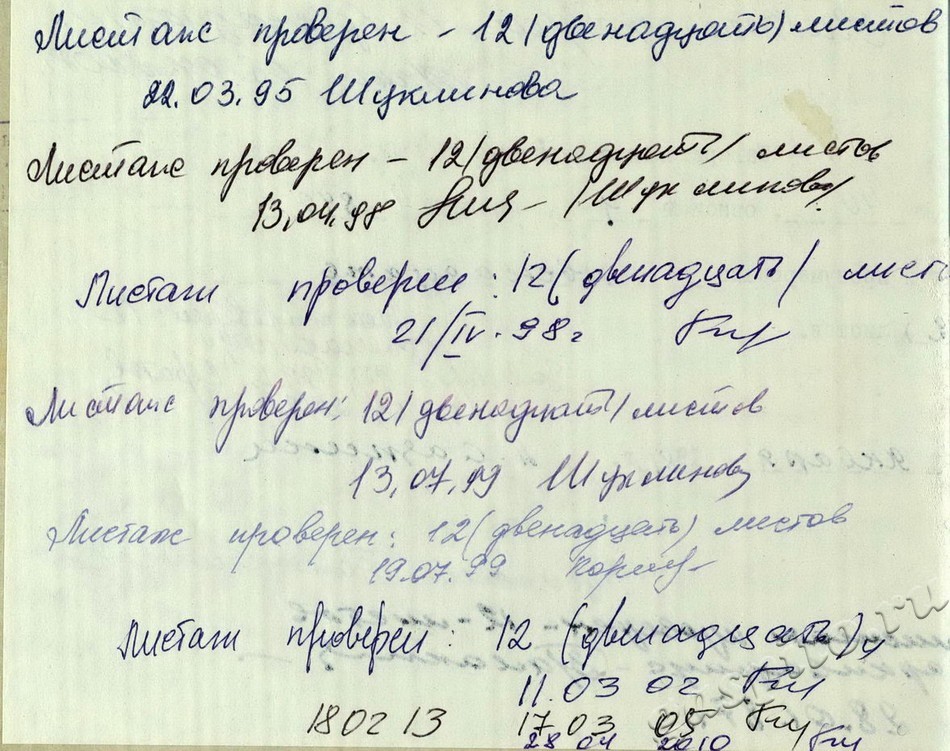 Листаж проверен - 12 (двенадцать) листов
22.03.95 Шуклинова
Листаж проверен - 12 /двенадцать/ листов
13.04.98 /Шуклинова/
Листаж проверен : 12 (двенадцать/ лист
21/IV. 98г
Листаж проверен: 12 /двенадцать/ листов
13.07.99 Шуклинова
Листаж проверен: 12 (двенадцать) листов
19.07.99
Листаж проверен : 12 (двенадцать)
11.03 02
180213 17 03 05
28 04 2010